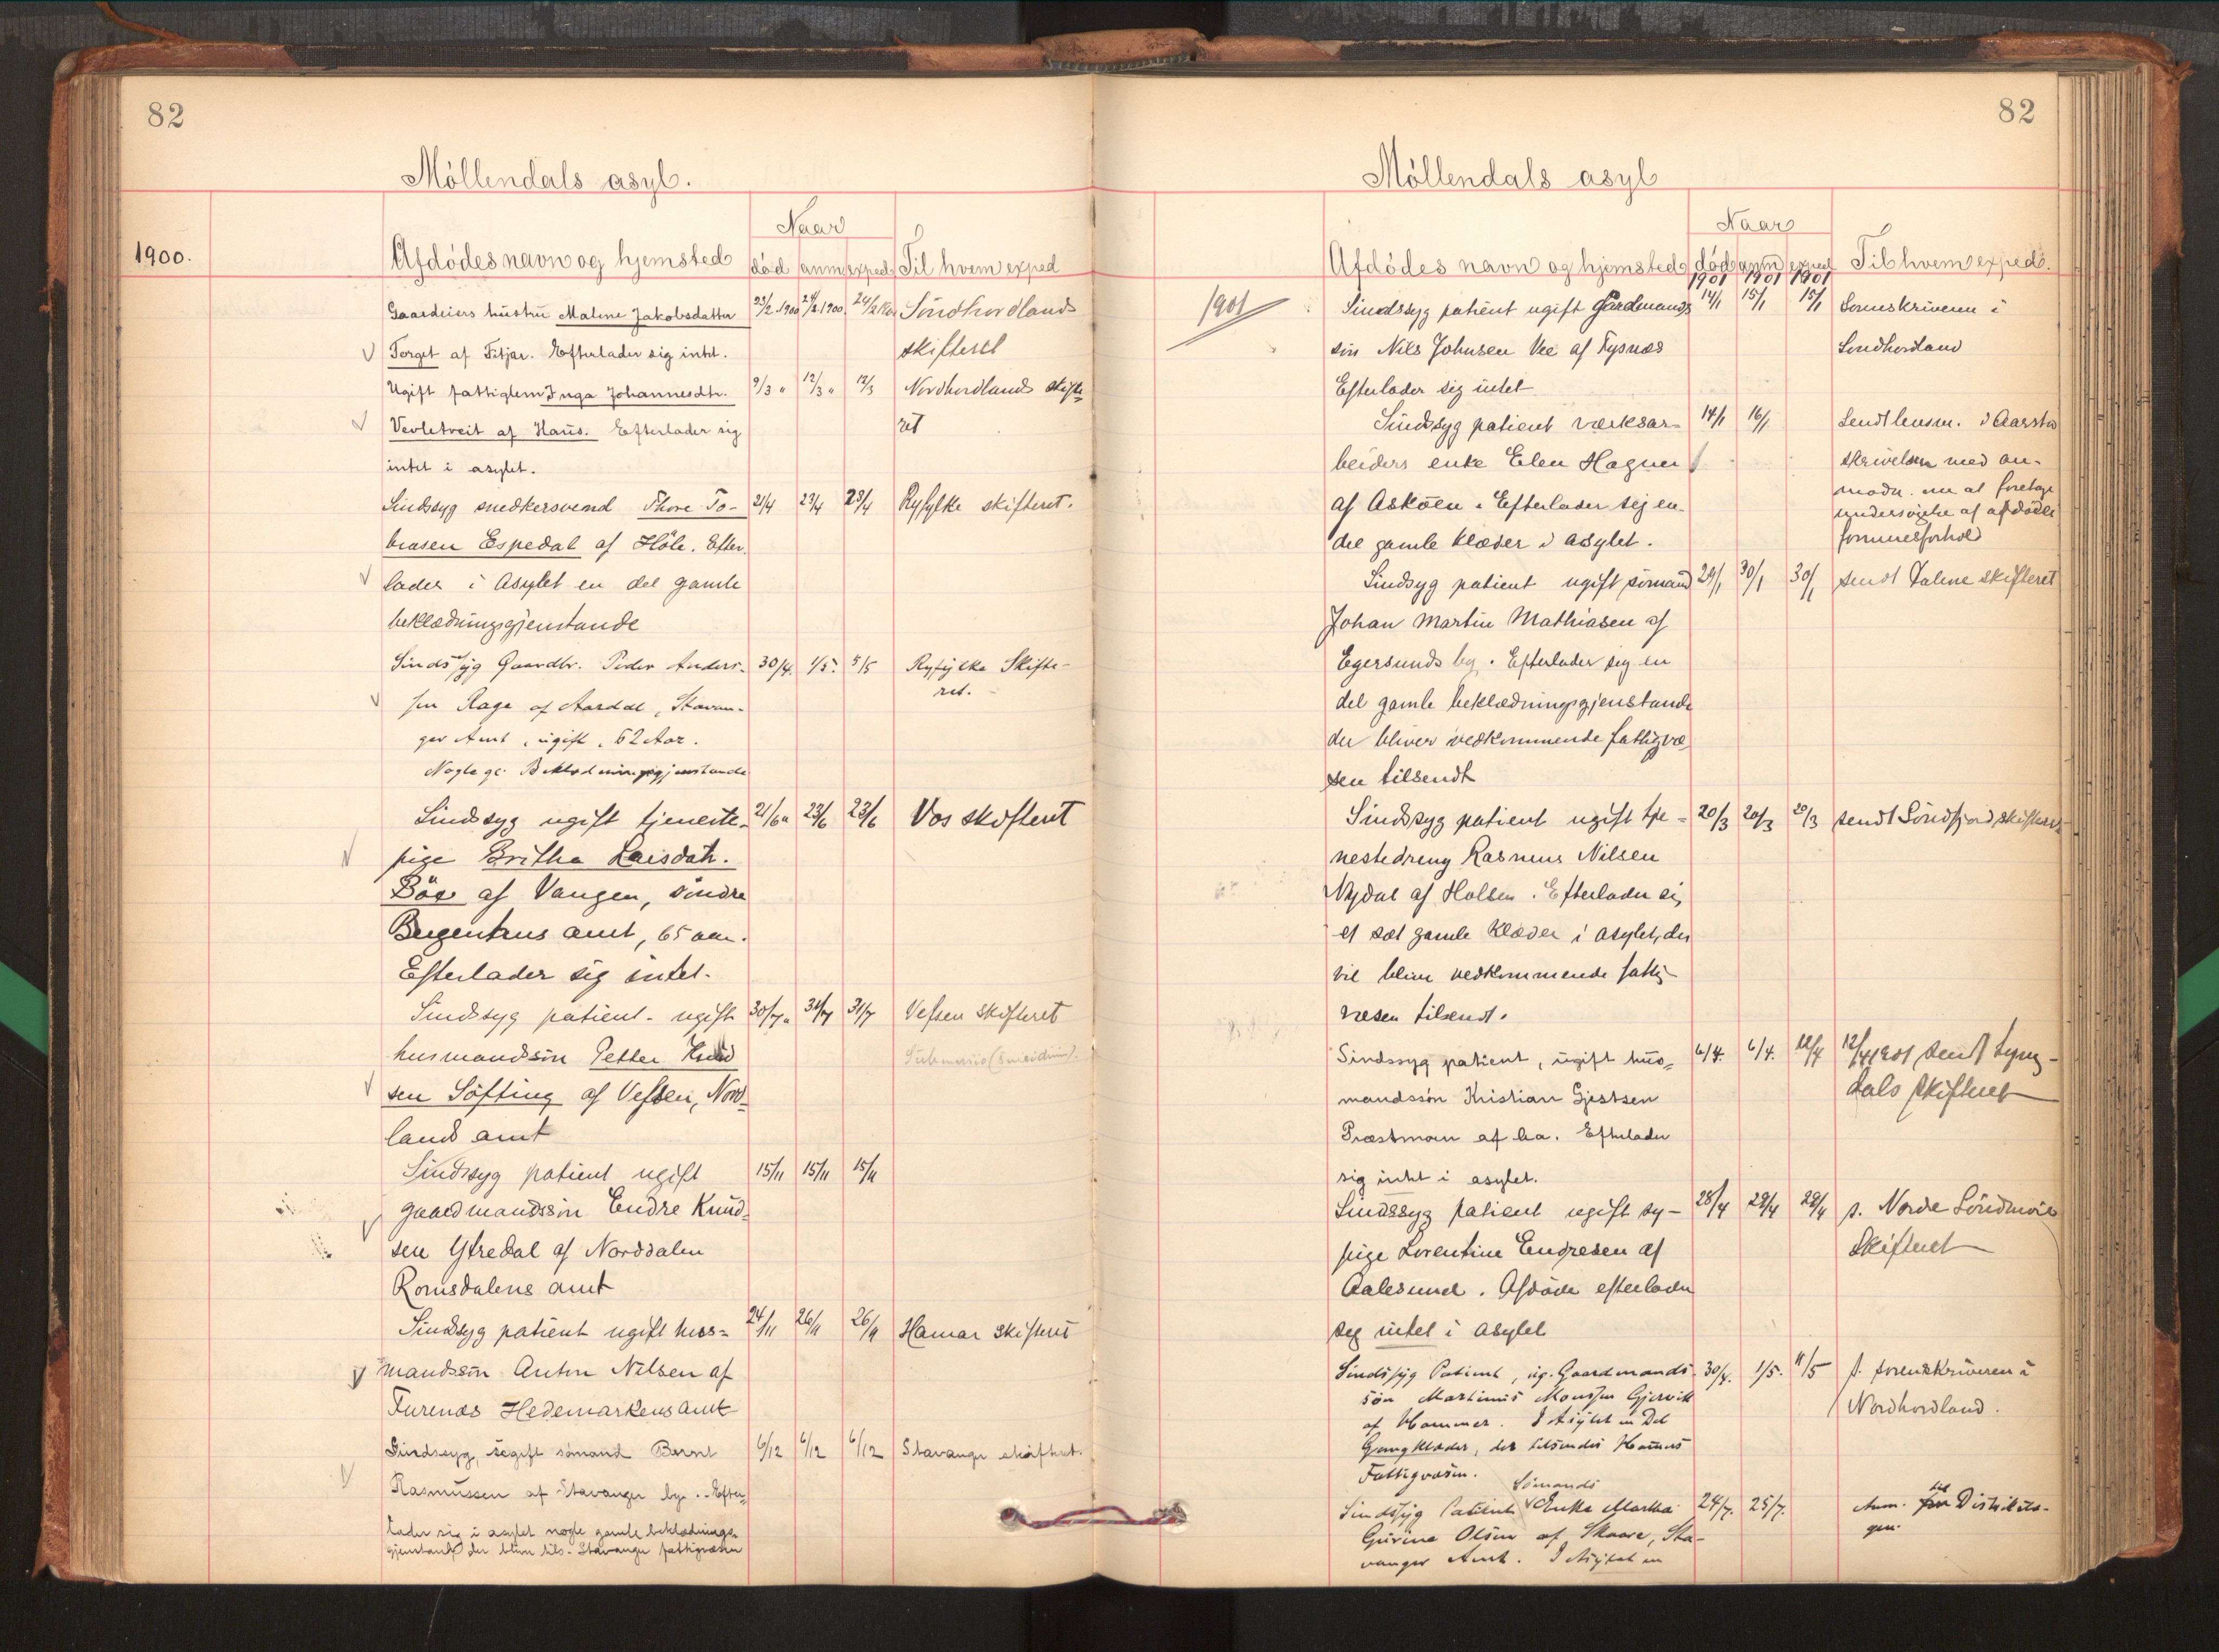 82
Möllendals asyl.
1900.
Naar
Afdödes navn og hjemsted død anm exped Til hvem exped
Gaardeiers hustru Maline Jakobsdatter 23/2 1900 24/2 1900 24/2 Söndhordlands
Torget af Fitjar. Efterlader sig intet. skifteret
Ugift fattiglem Inga Johannesdtr. 9/3 " 12/3 " 12/3 Nordhordlands skifte
Vevletveit af Haus. Efterlader sig ret
intet i asylet.
Sindssyg snedkersvend Thore To- 21/4 23/4 23/4 Ryfylke skifteret.
biasen Espedal af Höle. Efter
lader i Asylet en del gamle
beklædningsgjenstande
Sindssyg Gaardbr. Peder Anders- 30/4. 1/5. 5/5 Ryfylke Skifte-
sen Rage af Aardal, Stavan- ret.
ger Amt, ugift, 62 Aar.
Nogle gl. Beklædningsgjenstande
Sindssyg ugift tjeneste- 21/6 " 23/6 23/6 Vos skifteret
pige Britha Larsdatr.
Böe af Vangen, söndre
Bergenhus amt, 65 aar.
Efterlader sig intet.
Sindssyg patient - ugift 30/7 " 31/7 31/7 Vefsen skifteret
husmandssön Petter Knud
sen Söfting af Vefsen, Nord-
lands amt
Sindssyg patient ugift 15/11 15/11 15/11
gaardmandssön Endre Knud-
sen Ytredal af Norddalen
Romsdalens amt
Sindssyg patient ugift hus- 24/11 26/11 26/11 Hamar skifteret
mandssön Anton Nilsen af
Furenæs Hedemarkens amt
Sindssyg, ugift sömand Bernt 6/12 6/12 6/12 Stavanger skifteret.
Rasmussen af Stavanger by. Efter-
lader sig i asylet nogle gamle beklædnings-
gjenstande der bliver tils. Stavanger fattigvæsen
82
Möllendals asyl
Naar
Afdödes navn og hjemsted död anm exped Til hvem exped.
1901 1901 1901
1901 Sindssyg patient ugift Gårdmands 14/1 15/1 15/1 Sorenskriveren i
sön Nils Johnsen Vee af Tysnæs Söndhordland
Efterlader sig intet
Sindssyg patient værksar- 14/1 16/1 Sendt lensm. i Aarstad
beiders enke Elen Hagner skrivelsen med an-
modn. om at foretage
af Asköen. Efterlader sig en undersögelse af afdödes
del gamle klæder i asylet. formuesforhold
Sindsyg patient ugift sömand 29/1 30/1 30/1 sendt Dalene skifteret
Johan Martin Mathiasen af
Egersunds by. Efterlader sig en
del gamle beklædningsgjenstande
der bliver vedkommende fattigvæ
sen tilsendt
Sindssyg patient ugift tje- 20/3 20/3 20/3 sendt Söndfjord skifteret
nestedreng Rasmus Nilsen
Nydal af Holsen. Efterlader sig
et sæt gamle klæder i asylet, der
vil blive vedkommende fattig
væsen tilsendt.
Sindssyg patient, ugift hus- 6/4. 6/4. 12/4 12/4 1901 sendt Lyng-
mandssön Kristian Gjertsen dals skifteret
Præstmoen af . Efterlader
sig intet i asylet.
Sindssyg patient ugift sy- 28/4 29/4 29/4 s. Nordre Söndmöre
pige Lorentine Endresen af Skifteret
Aalesund. Afdöde efterlader
sig intet i asylet
Sindssyg Patient, ug. Gaardmands- 30/4. 1/5. 11/5 s. sorenskriveren i
sön Martinus Monsen Gjervik Nordhordland.
af Hammer. I Asylet en Del
Gangklæder, der tilsendes Hammers
Fattigvæsen.
Sömands
Sindssyg Patient Enke Martha 24/7. 25/7. Anm. til Distrikts-
Gurine Olsen af Skaare, Sta-
vanger Amt. I Asylet en